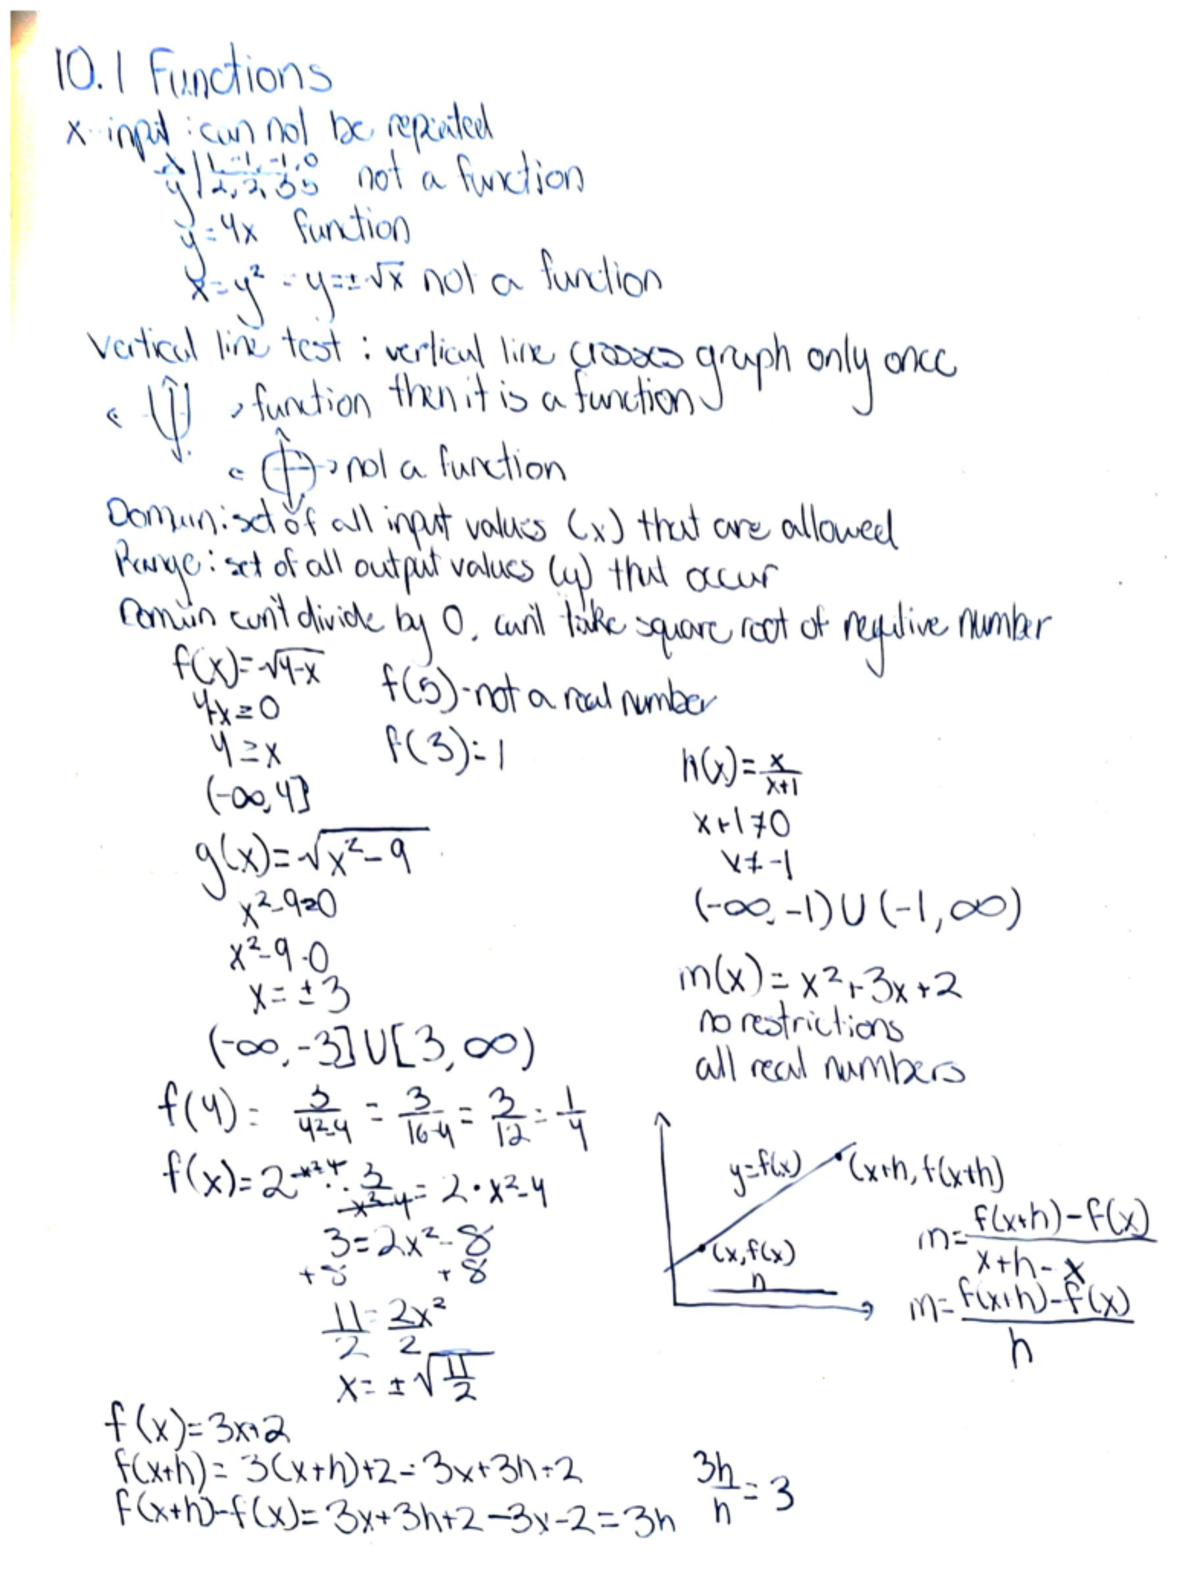 10.1 Functions
x-input: can not be repeated
x | 1, -1, -1, 0
y | 2, 2, 3 5 not a function
y=4x function
x=y² - y=±√x not a function
Vertical line test: vertical line crosses graph only once
function then it is a function
not a function
Domain: set of all input values (x) that are allowed
Range: set of all output values (y) that occur
Domain can't divide by 0, can't take square root of negative number
f(x)=√4-x f(5)-not a real number
4-x≥0
4≥x f(3)=1
(-∞,4]
h(x)=x/x+1
x+1≠0
x≠-1
(-∞,-1)∪(-1,∞)
g(x)=√x²-9
x²-9≥0
x²-9=0
x=±3
(-∞,-3]∪[3,∞)
m(x)=x²+3x+2
no restrictions
all real numbers
f(4)= 3/4²-4 = 3/16-4 = 3/12 = 1/4
f(x)=2 x²-4 · 3/x²-4 = 2·x²-4
3=2x²-8
+8 +8
11/2=2x²/2
x=±√11/2
y=f(x) (x+h, f(x+h)
(x,f(x)
h
m=f(x+h)-f(x)/x+h-x
m=f(x+h)-f(x)/h
f(x)=3x+2
f(x+h)=3(x+h)+2=3x+3h+2
f(x+h)-f(x)=3x+3h+2-3x-2=3h 3h/h=3